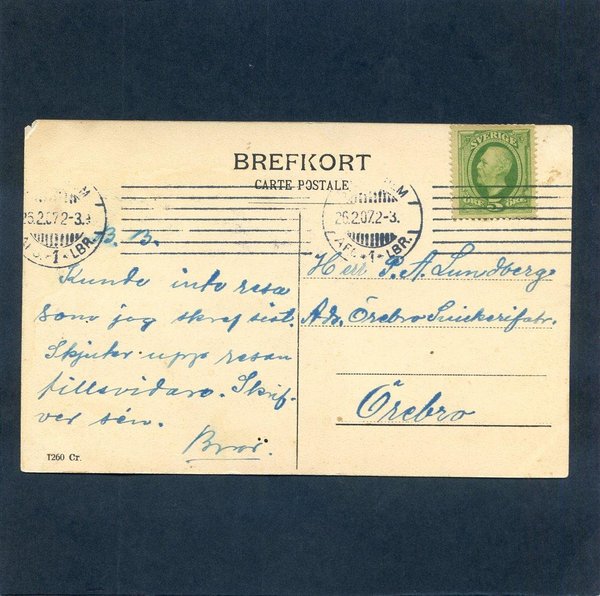 BREFKORT
CARTE POSTALE
SVERIGE
ÖRE 5 ÖRE
26.2.07.2-3.
LBR.
26.2.07.2-3.
1 LBR.
B. B.
Kunde inte resa
som jag skref sist.
Skjuter upp resan
tillsvidare. Skrif-
ver sen.
Bror.
Herr P. A. Lundberg
Adr. Örebro Snickerifabr.
Örebro
1260 Cr.